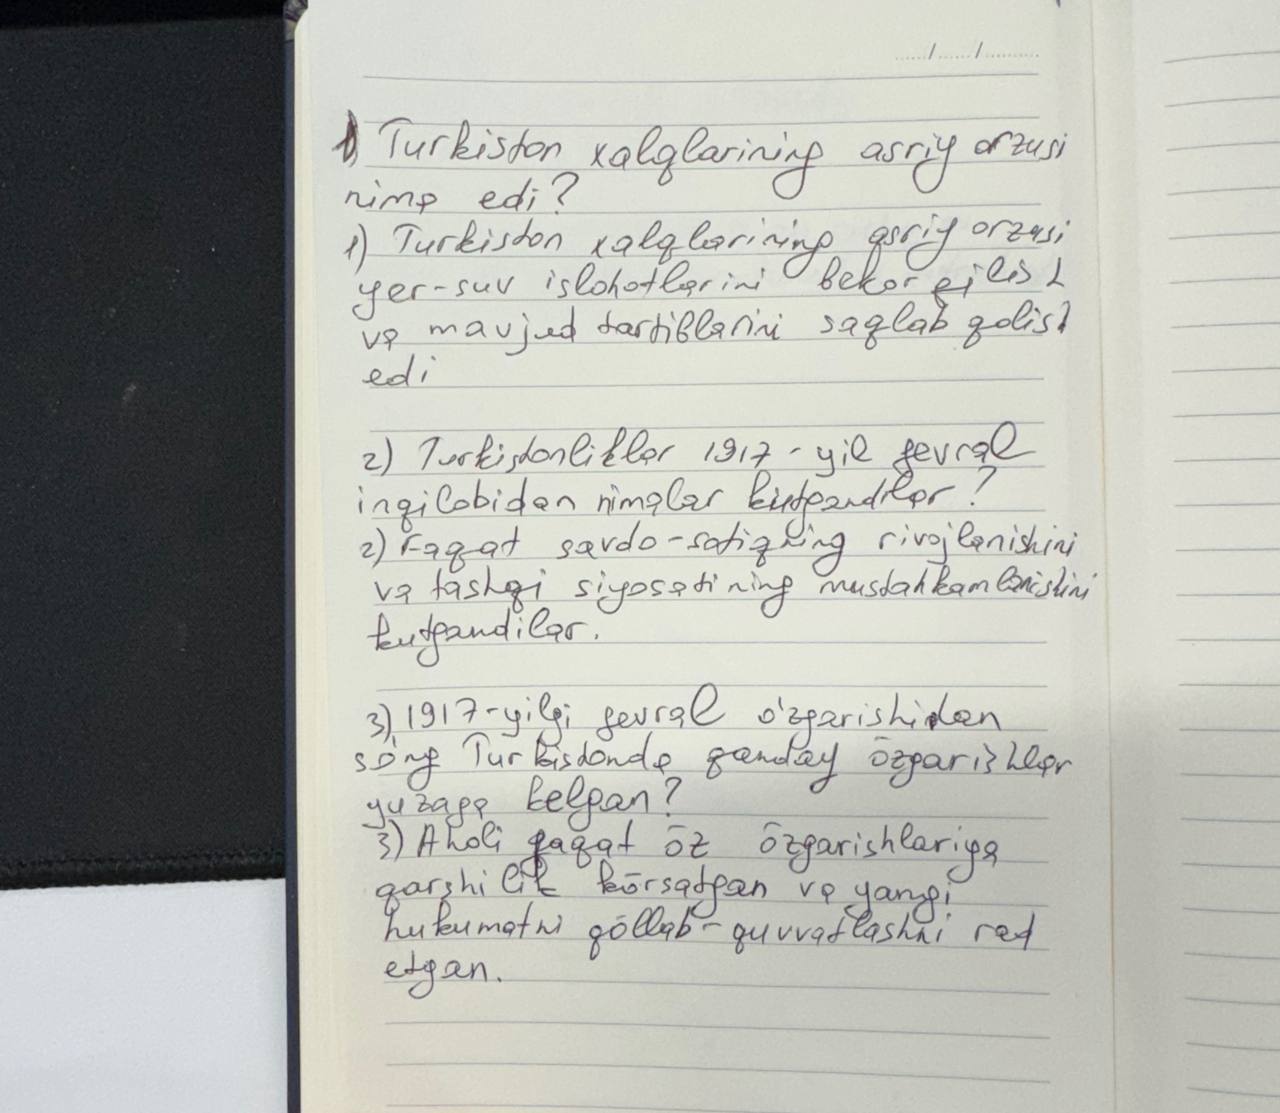 1) Turkiston xalqlarining asriy orzusi
nima edi?
1) Turkiston xalqlarining asriy orzusi
yer-suv islohotlarini bekor qilish
va mavjud tartiblarini saqlab qolish
edi
2) Turkistonliklar 1917-yil fevral
inqilobidan nimalar kutgandilar?
2) Faqat savdo-sotiqning rivojlanishini
va tashqi siyosatining mustahkamlanishini
kutgandilar.
3) 1917-yilgi fevral o'zgarishidan
sōng Turkistonda qanday ōzgarishlar
yuzaga kelgan?
3) Aholi faqat ōz ōzgarishlariga
qarshilik kōrsatgan va yangi
hukumatni qōllab-quvvatlashni rad
etgan.